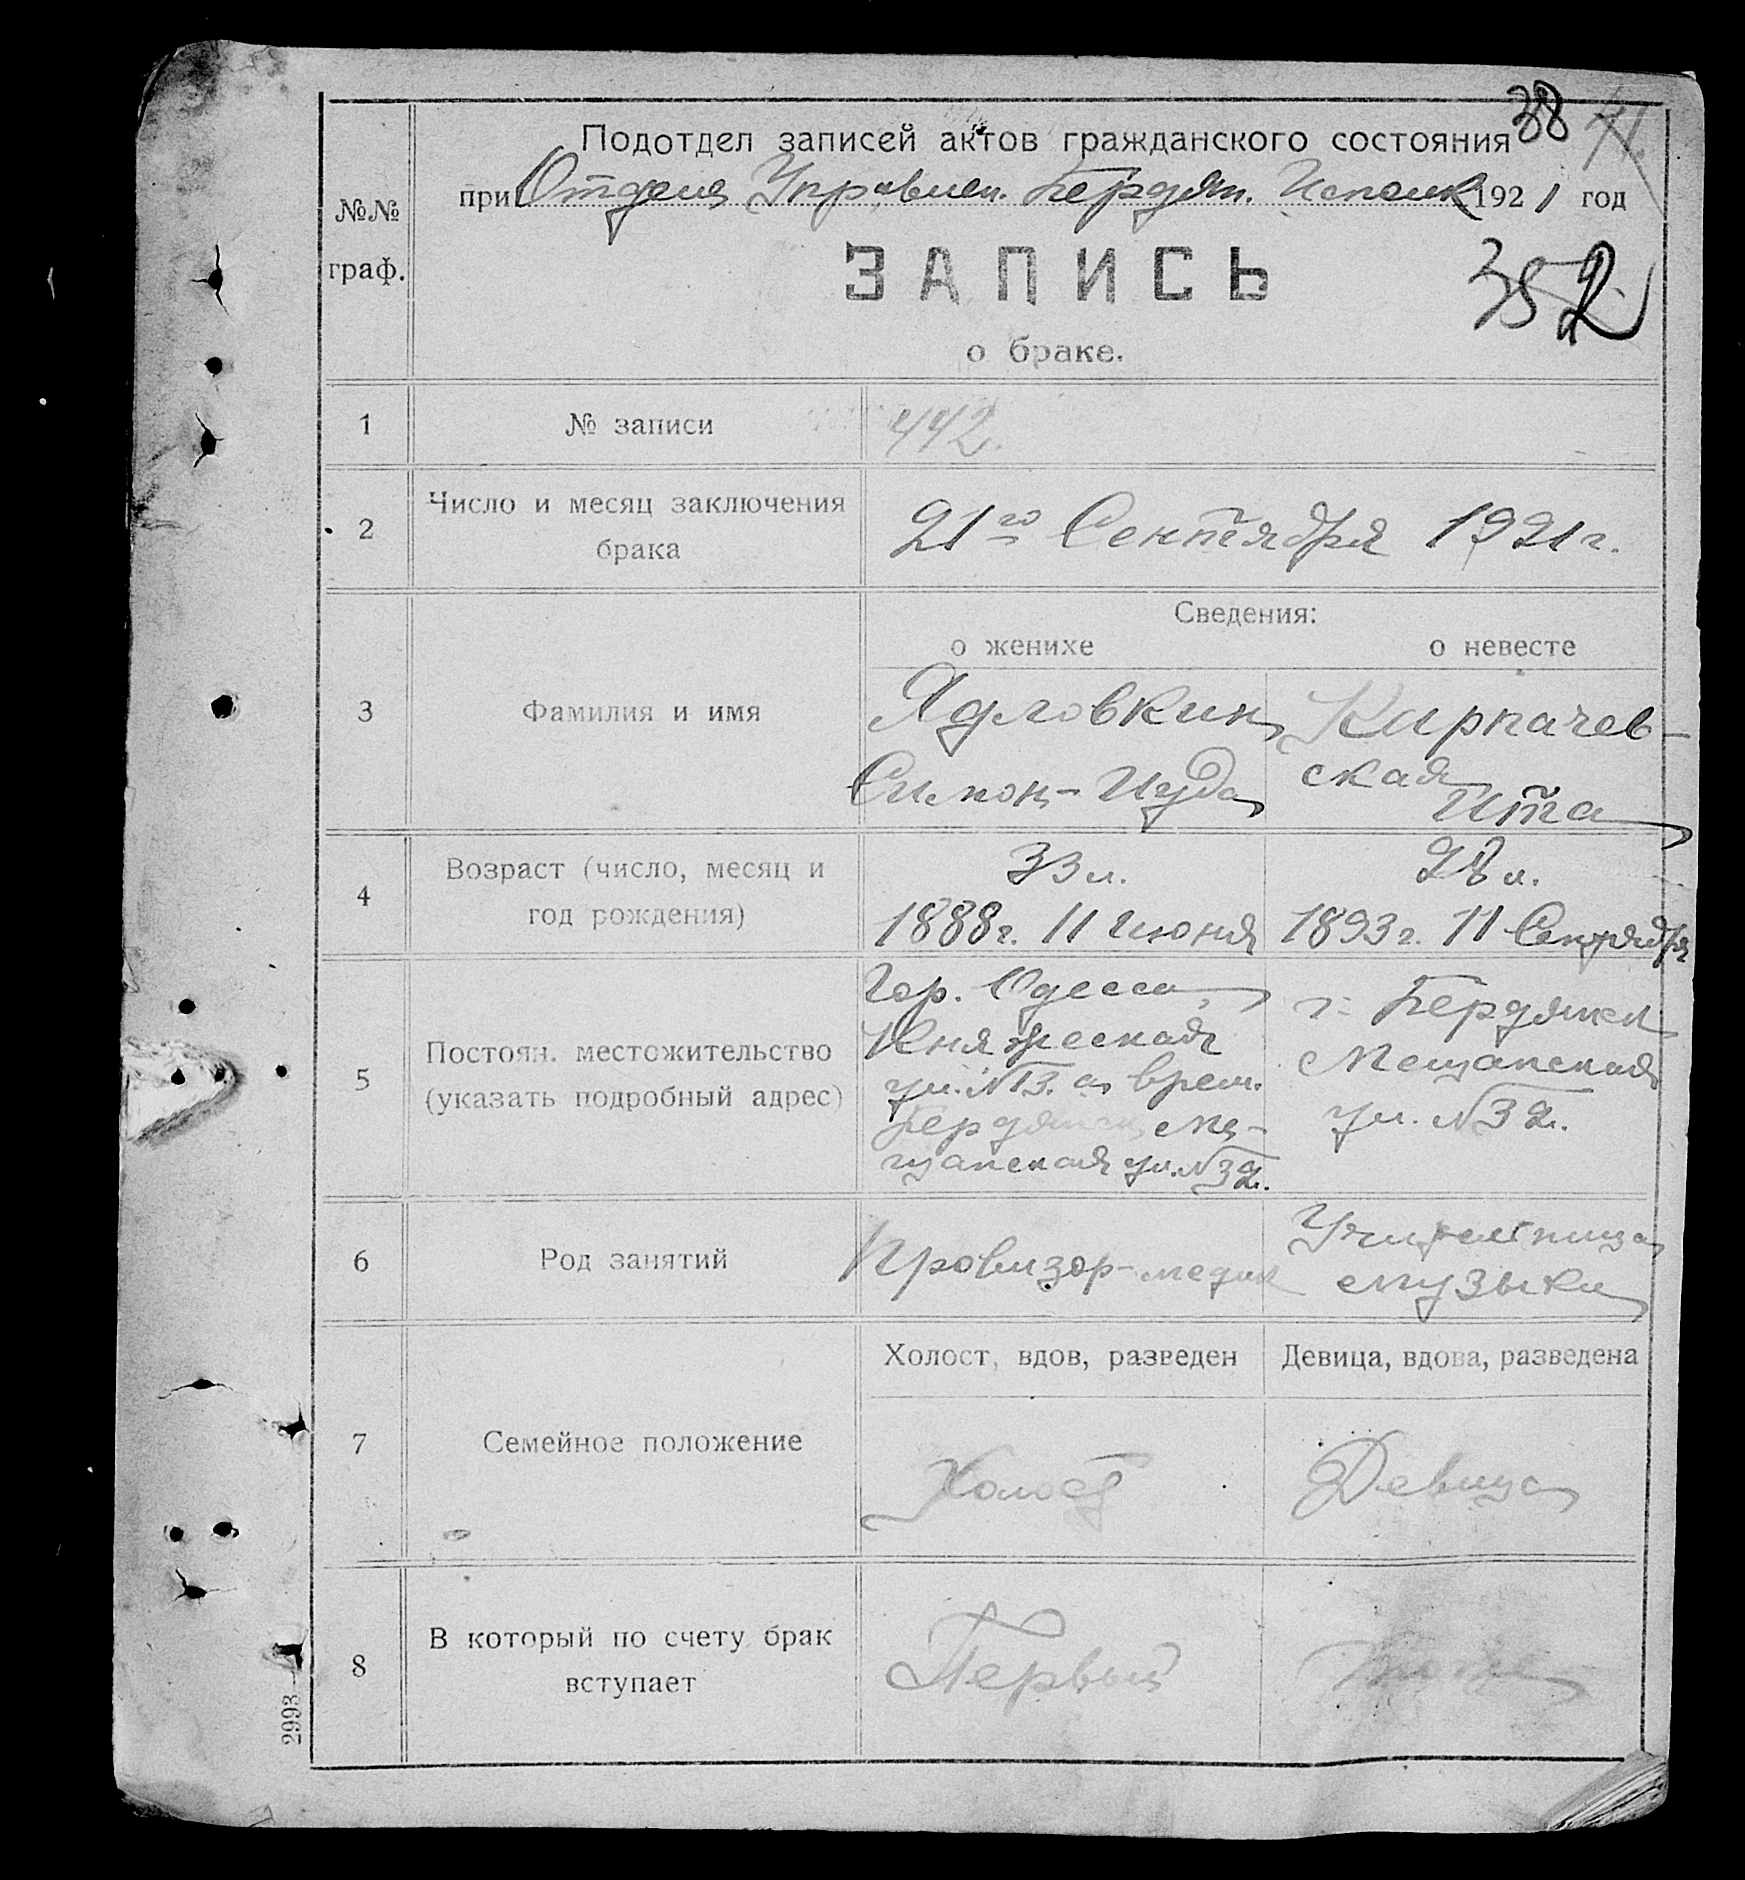 38
Подотдел записей актов гражданского состояния
при Отделе Управлен. Бердян. Исполк 1921 год
№№ граф.
ЗАПИСЬ
352
о браке.
1 № записи 442.
2 Число и месяц заключения брака 21го Сентября 1921 г.
Сведения:
о женихе о невесте
3 Фамилия и имя
Ядловкин
Симон-Иуда
Карпачев-
ская
Ита
4 Возраст (число, месяц и
год рождения)
33 л.
1888 г. 11 Июня
28 л.
1893 г. 11 Сентября
5 Постоян. местожительство
(указать подробный адрес)
Гор. Одесса,
Княжеская
ул. № 13. а врем.
Бердянск Ме-
щанская ул. № 32.
г. Бердянск
Мещанская
ул. № 32.
6 Род занятий
Провизор-медик
Учительница
музыки
7 Семейное положение
Холост, вдов, разведен
Девица, вдова, разведена
Холост
Девица
8 В который по счету брак
вступает
Первый
Тоже
2993